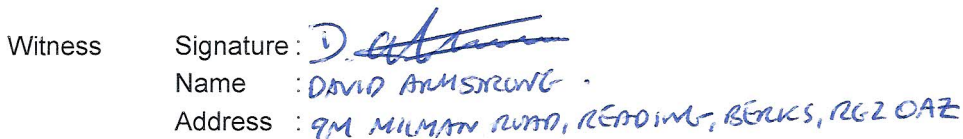 Witness Signature :
Name : DAVID ARMSTRONG .
Address : 9M MILMAN ROAD, READING, BERKS, RG2 0AZ